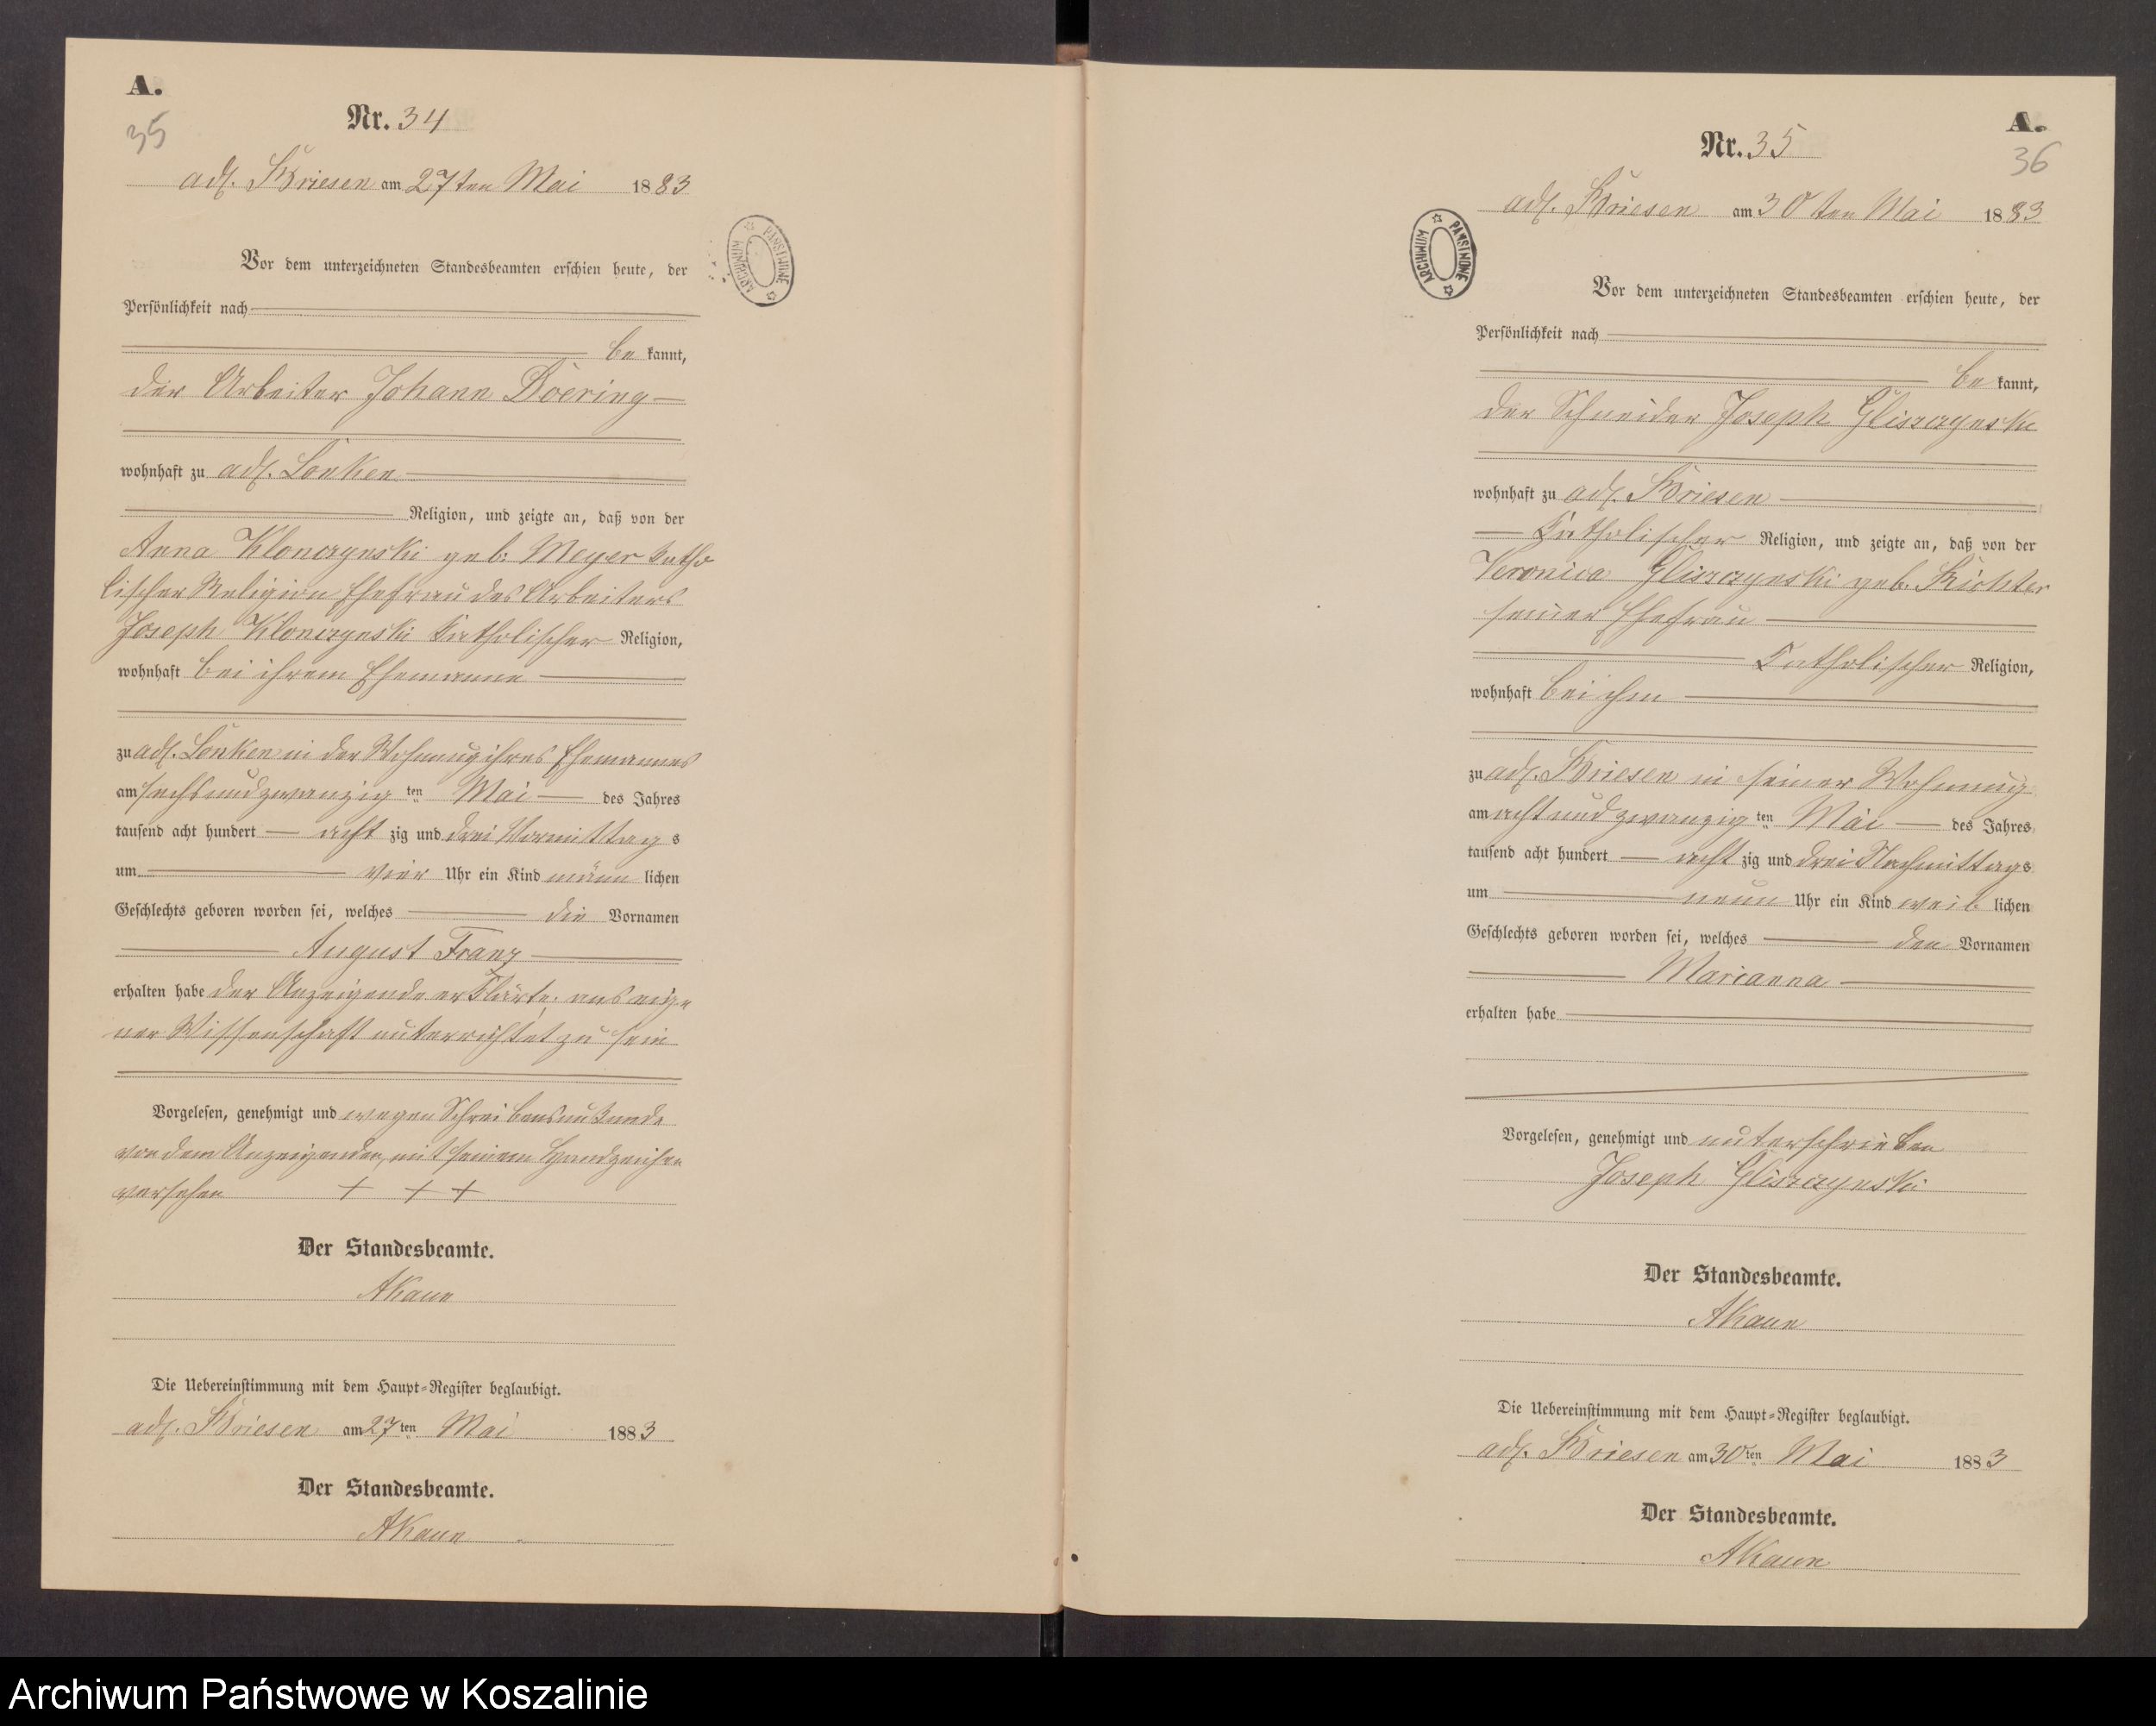 A.
35
Nr. 34
adl. Briesen am 27ten Mai 1883
Vor dem unterzeichneten Standesbeamten erschien heute, der
Persönlichkeit nach
be kannt,
der Arbeiter Johann Doering
wohnhaft zu adl. Lonken
Religion, und zeigte an, daß von der
Anna Klonczynski geb. Meyer katho
lischer Religion Ehefrau des Arbeiters
Joseph Klonczynski katholischer Religion,
wohnhaft bei ihrem Ehemanne
zu adl. Lonken in der Wohnung ihres Ehemannes
am sechs und zwanzig ten Mai des Jahres
tausend acht hundert acht zig und drei Vormittag s
um vier Uhr ein Kind männ lichen
Geschlechts geboren worden sei, welches die Vornamen
August Franz
erhalten habe der Anzeigende erklärte, aus eige
ner Wissenschaft unterrichtet zu sein
Vorgelesen, genehmigt und wegen Schreibensunkunde
von dem Anzeigenden mit seinem Handzeichen
versehen + + +
Der Standesbeamte.
AKaun
Die Uebereinstimmung mit dem Haupt-Register beglaubigt.
adl. Briesen am 27 ten Mai 1883
Der Standesbeamte.
AKaun
A.
36
Nr. 35
adl. Briesen am 30ten Mai 1883
PAŃSTWOWE ARCHIWUM
Vor dem unterzeichneten Standesbeamten erschien heute, der
Persönlichkeit nach
be kannt,
der Schneider Joseph Gliszczynski
wohnhaft zu adl. Briesen
katholischer Religion, und zeigte an, daß von der
Veronica Gliszczynski geb. Richter
seiner Ehefrau
katholischer Religion,
wohnhaft bei ihm
zu adl. Briesen in seiner Wohnung
am acht und zwanzig ten Mai des Jahres
tausend acht hundert acht zig und drei Nachmittags
um neun Uhr ein Kind weib lichen
Geschlechts geboren worden sei, welches den Vornamen
Marianna
erhalten habe
Vorgelesen, genehmigt und unterschrieben
Joseph Gliszczynski
Der Standesbeamte.
AKaun
Die Uebereinstimmung mit dem Haupt-Register beglaubigt.
adl. Briesen am 30 ten Mai 1883
Der Standesbeamte.
AKaun
Archiwum Państwowe w Koszalinie